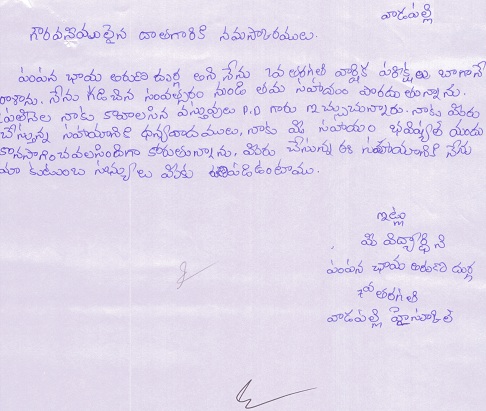 వాడపల్లి
గౌరవనీయులైన దాతగారికి నమస్కారములు.
పంపన ఛాయ అరుణ దుర్గ అని నేను 7వ తరగతి వార్షిక పరీక్షలు బాగానే
రాశాను. నేను గడిచిన సంవత్సరం నుండి తమ సహాయం పొందుతున్నాను.
ప్రతినెల నాకు కావాలసిన వస్తువులు P.D గారు ఇచ్చుచున్నారు. నాకు మీరు
చేస్తున్న సహాయానికి ధన్యవాదములు, నాకు మీ సహాయం భవిష్యత్ యందు
కొనసాగించవలసిందిగా కోరుతున్నాను. మీరు చేస్తున్న ఈ సహాయానికి నేను
మా కుటుంబ సభ్యులు మీకు ఋణపడి ఉంటాము.
ఇట్లు
మీ విద్యార్థిని
పంపన ఛాయ అరుణ దుర్గ
7వ తరగతి
వాడపల్లి హైస్కూల్